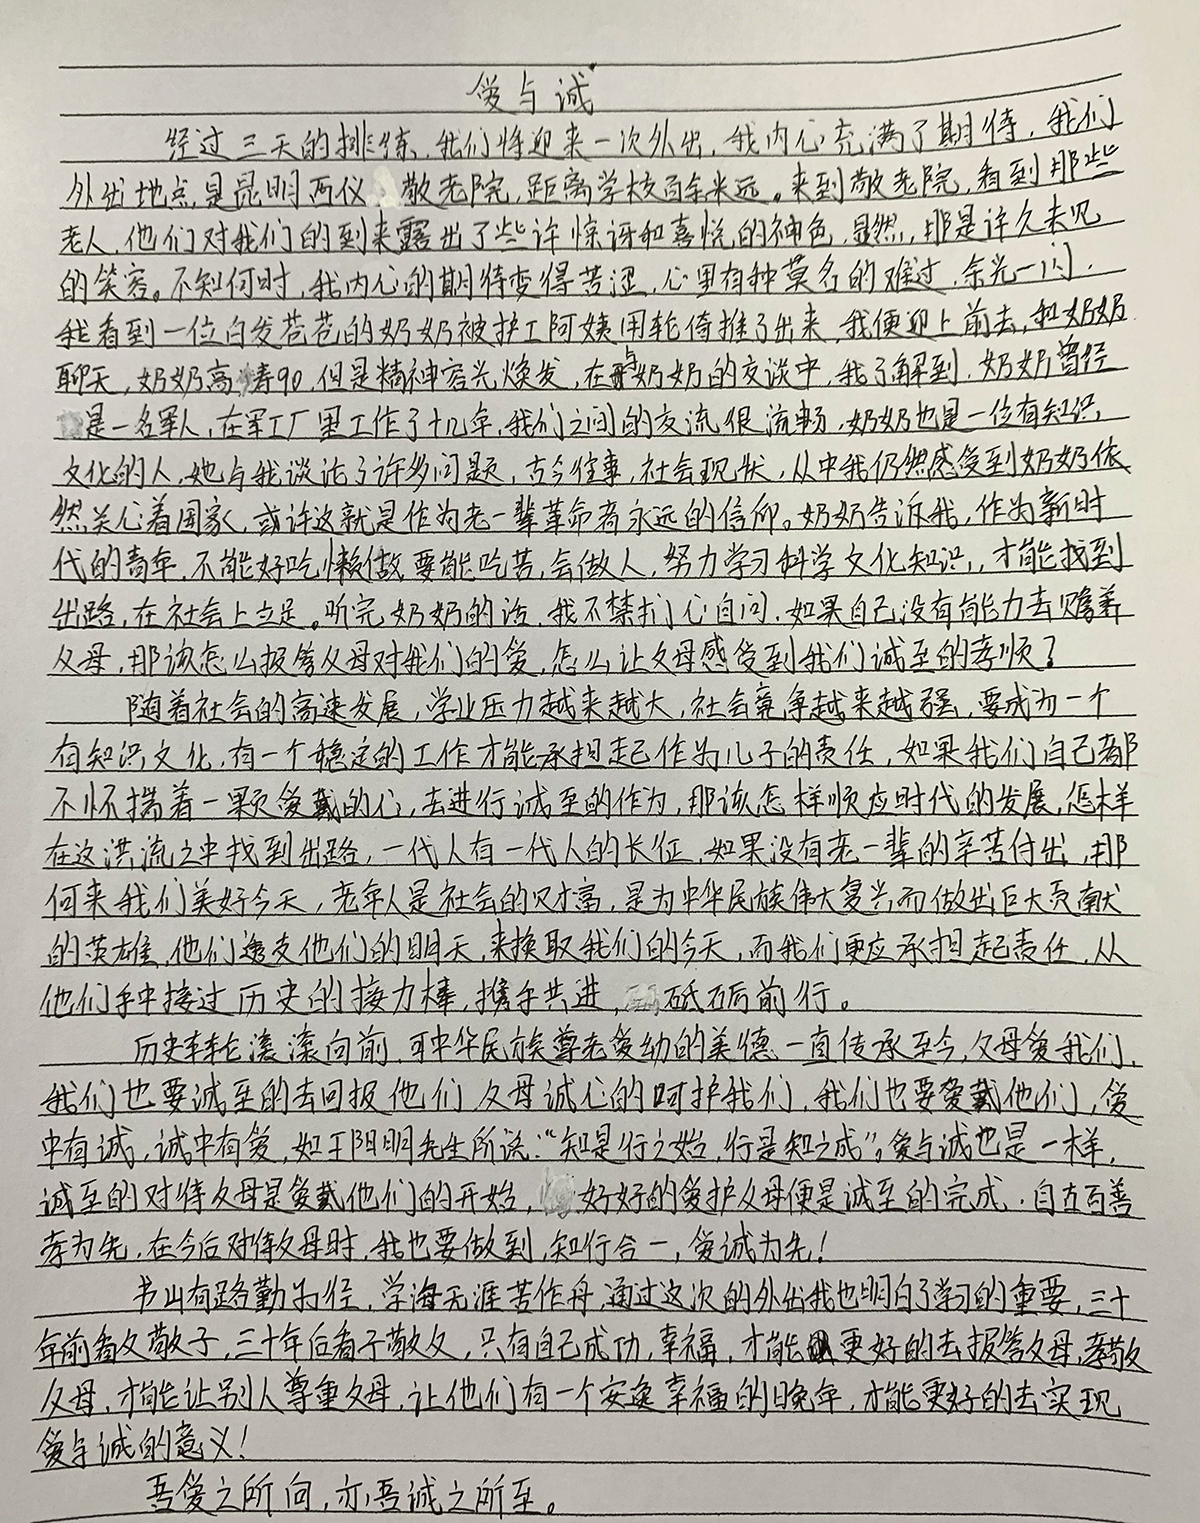 爱与诚
经过三天的排练,我们将迎来一次外出,我内心充满了期待,我们
外出地点是昆明两仪敬老院,距离学校百余米远。来到敬老院,看到那些
老人,他们对我们的到来露出了些许惊讶和喜悦的神色,显然,那是许久未见
的笑容。不知何时,我内心的期待变得苦涩,心里有种莫名的难过,余光一闪.
我看到一位白发苍苍的奶奶被护工阿姨用轮倚推了出来,我便迎上前去,和奶奶
聊天,奶奶高寿90,但是精神容光焕发,在与奶奶的交谈中,我了解到,奶奶曾经
是一名军人,在军工厂里工作了十几年,我们之间的交流很流畅,奶奶也是一位有知识,
文化的人,她与我谈论了许多问题,古今往事,社会现状,从中我仍然感受到奶奶依
然关心着国家,或许这就是作为老一辈革命者永远的信仰。奶奶告诉我,作为新时
代的青年,不能好吃懒做,要能吃苦,会做人,努力学习科学文化知识,,才能找到
出路,在社会上立足。听完奶奶的话,我不禁扪心自问,如果自己没有能力去赡养
父母,那该怎么报答父母对我们的爱,怎么让父母感受到我们诚至的孝顺?
随着社会的高速发展,学业压力越来越大,社会竞争越来越强,要成为一个
有知识文化,有一个稳定的工作才能承担起作为儿子的责任,如果我们自己都
不怀揣着一颗爱戴的心,去进行诚至的作为,那该怎样顺应时代的发展,怎样
在这洪流之中找到出路,一代人有一代人的长征,如果没有老一辈的辛苦付出,那
何来我们美好今天,老年人是社会的财富,是为中华民族伟大复兴而做出巨大贡献
的英雄,他们透支他们的明天,来换取我们的今天,而我们更应承担起责任,从
他们手中接过历史的接力棒,携手共进,砥砺前行。
历史车轮滚滚向前,可中华民族尊老爱幼的美德一直传承至今,父母爱我们,
我们也要诚至的去回报他们,父母诚心的呵护我们,我们也要爱戴他们,爱
中有诚,诚中有爱,如王阳明先生所说:“知是行之始,行是知之成”,爱与诚也是一样,
诚至的对待父母是爱戴他们的开始,好好的爱护父母便是诚至的完成,自古百善
孝为先,在今后对待父母时,我也要做到,知行合一,爱诚为先!
书山有路勤为径,学海无涯苦作舟,通过这次的外出我也明白了学习的重要,三十
年前看父敬子,三十年后看子敬父,只有自己成功,幸福,才能更好的去报答父母,孝敬
父母,才能让别人尊重父母,让他们有一个安逸幸福的晚年,才能更好的去实现
爱与诚的意义!
吾爱之所向,亦吾诚之所至。